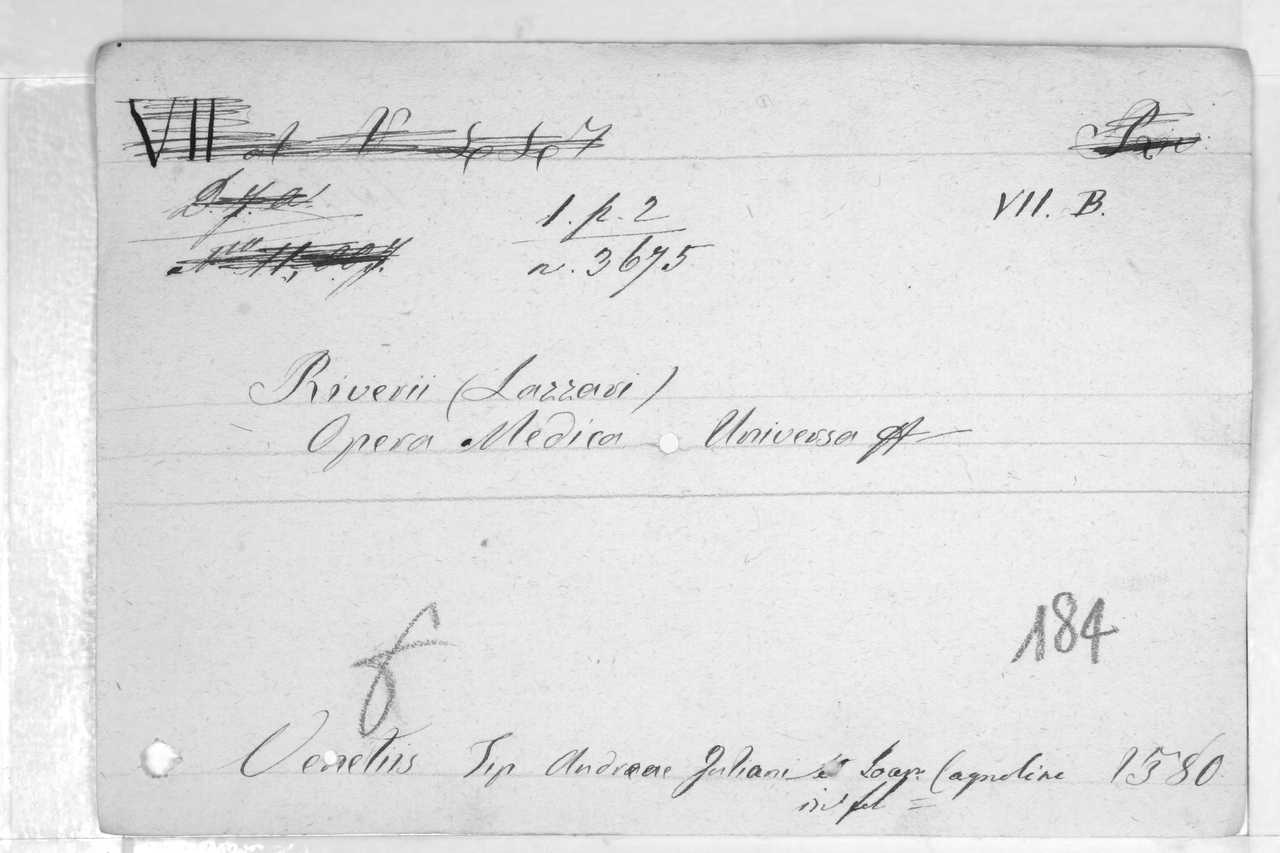 VII
1. p. 2
VII. B.
n. 3675
Riverii (Lazzari)
Opera Medica Universa
184
f
Venetiis Tip Andreae Juliani et Ioap. Cagnolini 1580
in fol =